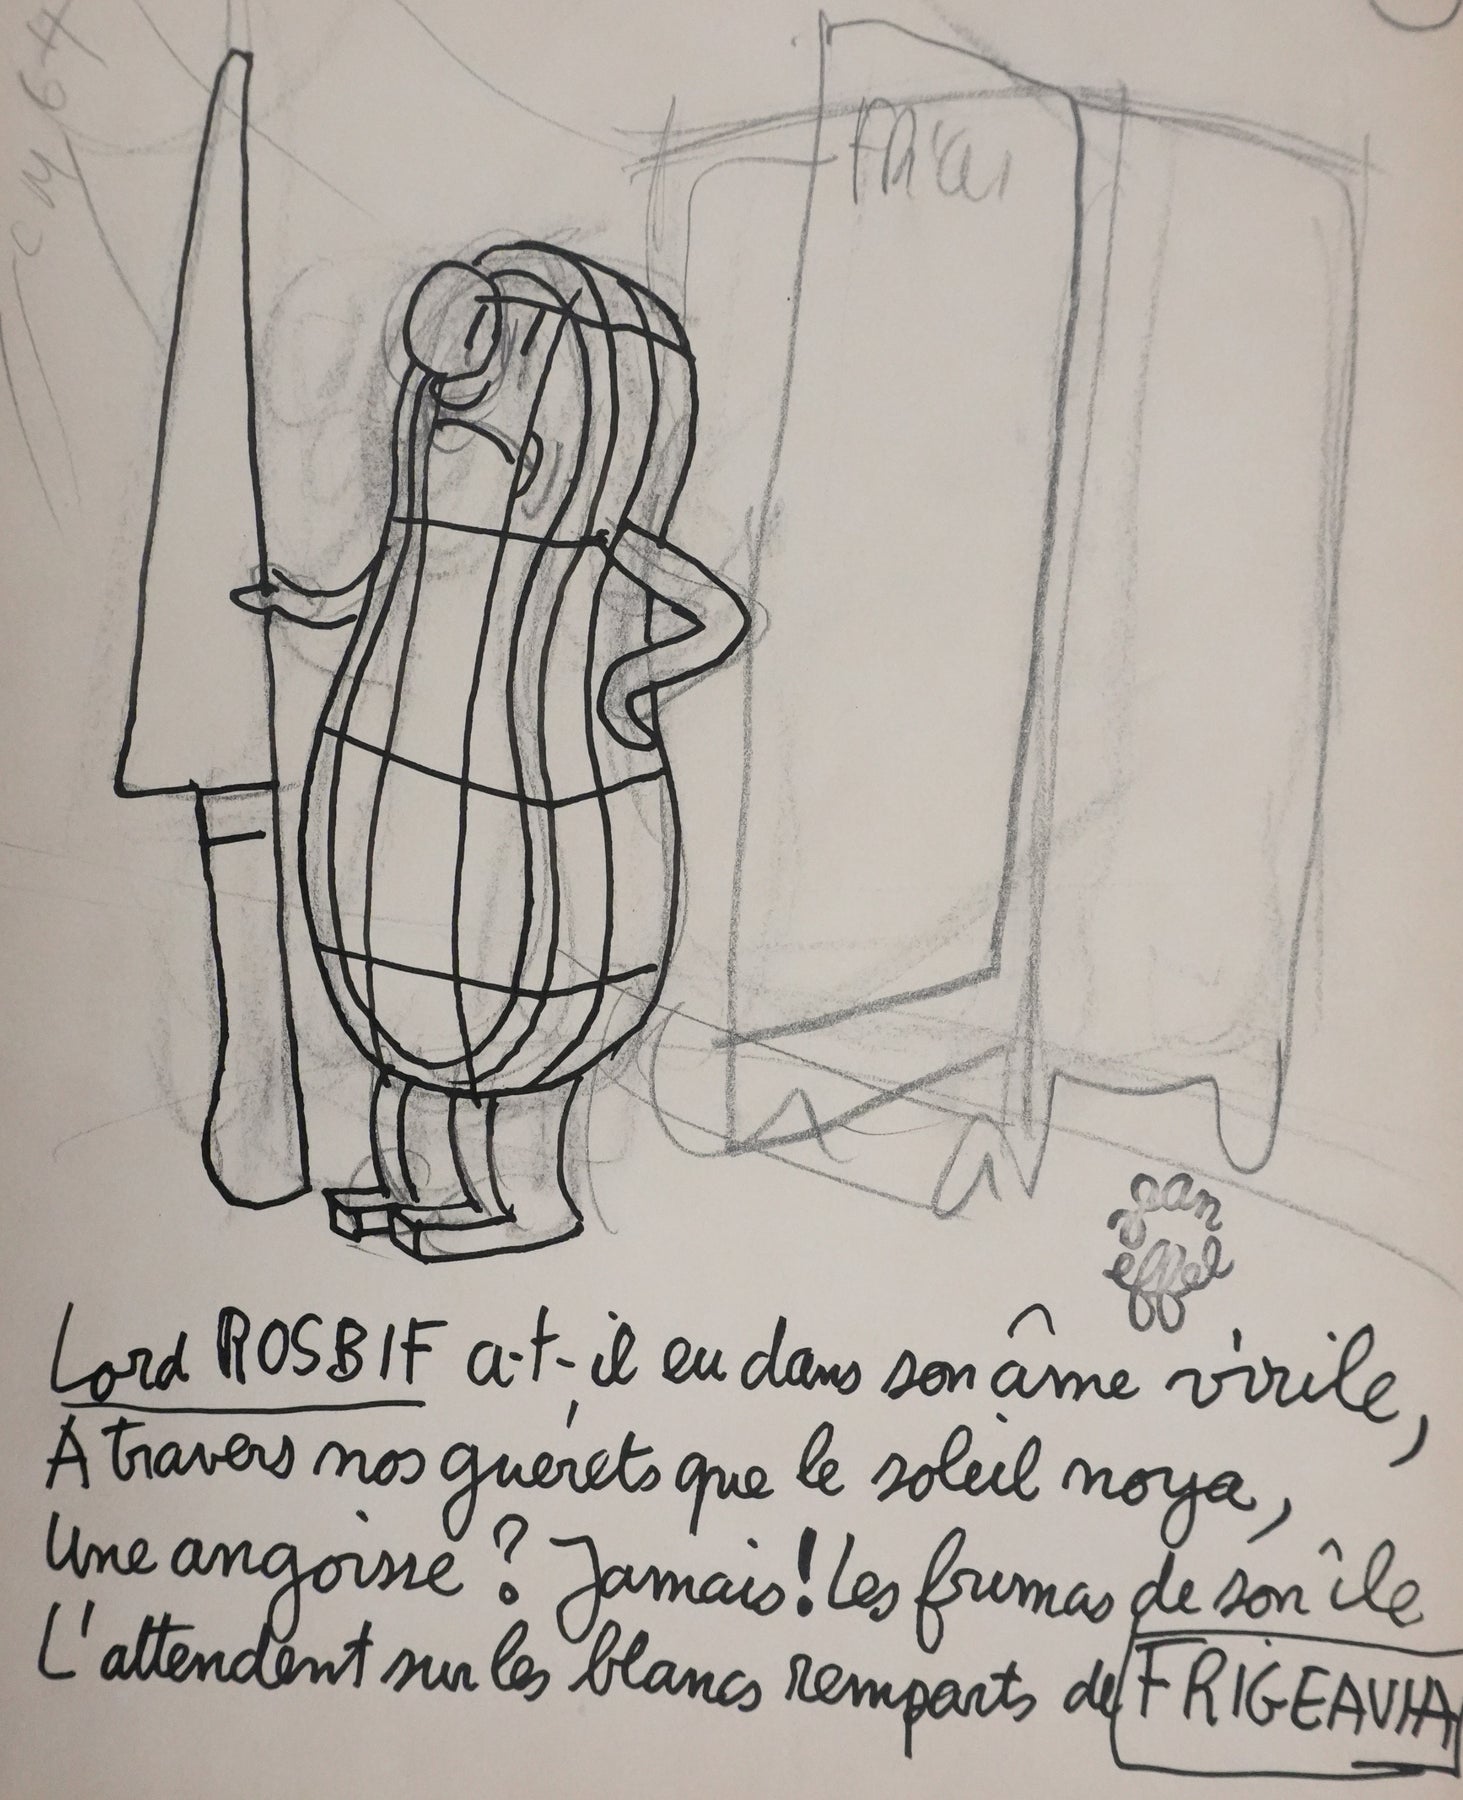 jean
effel
Lord ROSBIF a-t-il eu dans son âme virile,
A travers nos guérets que le soleil noya,
Une angoisse ? Jamais ! Les frimas de son île
L'attendent sur les blancs remparts de FRIGEAVIA